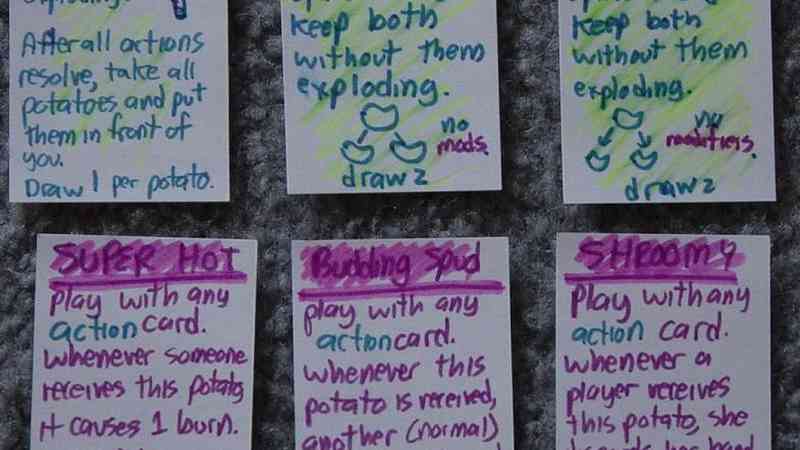 exploding.
After all actions
resolve, take all
potatoes and put
them in front of
you.
Draw 1 per potato.
keep both
without them
exploding.
no
mods.
draw 2
keep both
without them
exploding.
no
modifiers.
draw 2
SUPER HOT
play with any
action card.
whenever someone
receives this potato,
it causes 1 burn.
Budding Spud
play with any
action card.
whenever this
potato is received,
another (normal)
SHROOMY
Play with any
action card.
whenever a
player receives
this potato, she
hand